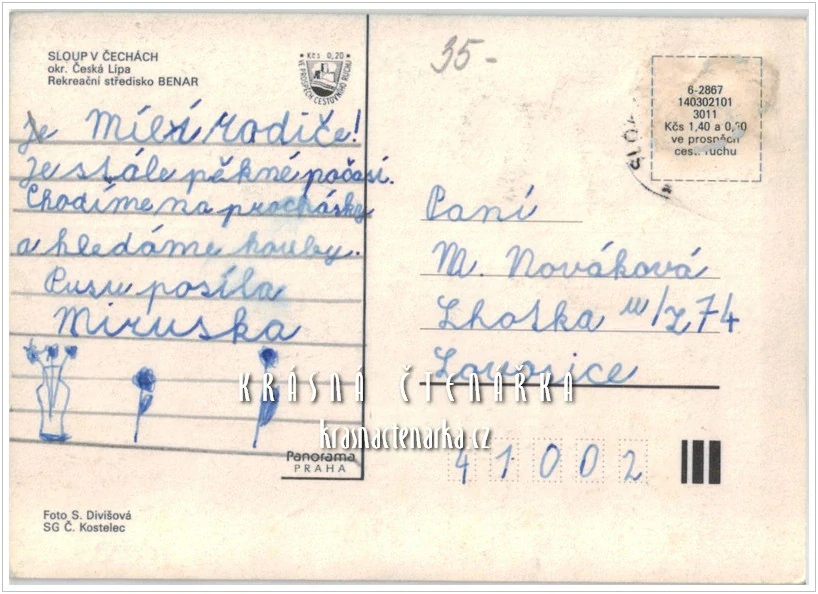 SLOUP V ČECHÁCH
okr. Česká Lípa
Rekreační středisko BENAR
Kčs 0,20
VE PROSPĚCH CESTOVNÍHO RUCHU
35-
6-2867
140302101
3011
Kčs 1,40 a 0,20
ve prospěch
cest. ruchu
je Milí rodiče!
je stále pěkné počasí.
Chodíme na procházky
a hledáme houby.
Pusu posíla
Miruska
Paní
M. Nováková
Lhotka n/L 74
Lovosice
KRÁSNÁ ČTENÁŘKA
krasnactenarka.cz
41002
Panorama
PRAHA
Foto S. Divišová
SG Č. Kostelec